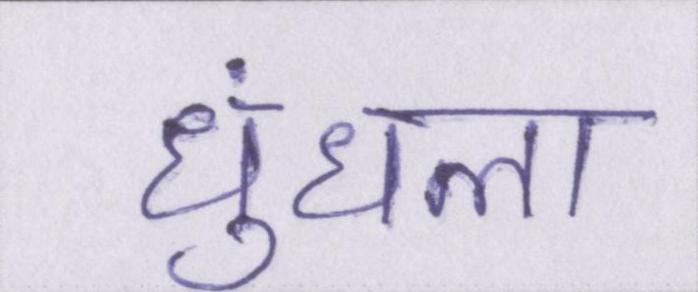 धुंधला